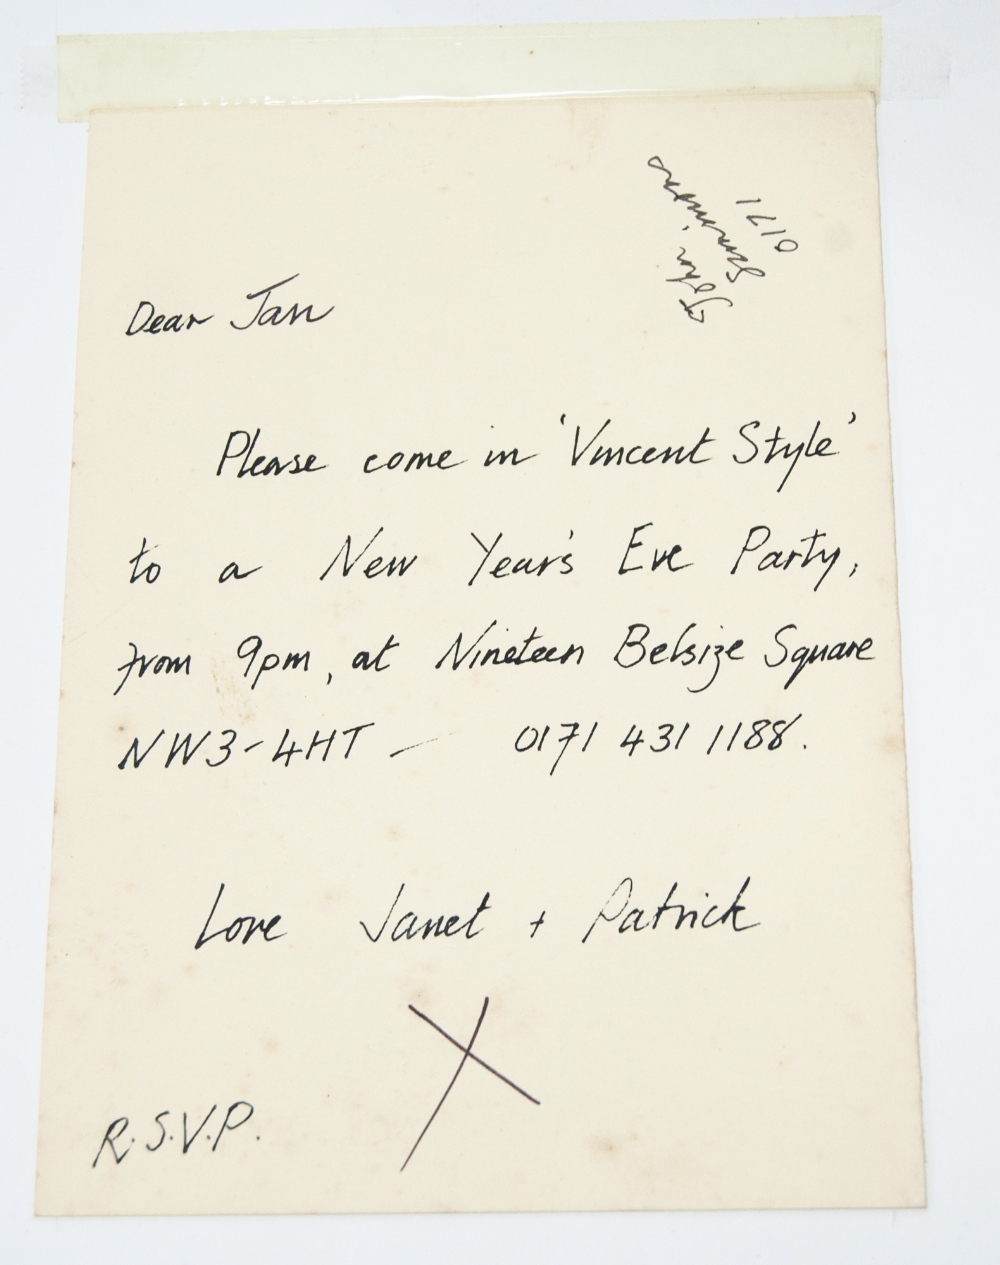 John
Summers
0171
Dear Jan
Please come in 'Vincent Style'
to a New Year's Eve Party,
from 9pm, at Nineteen Belsize Square
NW3-4HT — 0171 431 1188.
Love Janet + Patrick
X
R.S.V.P.